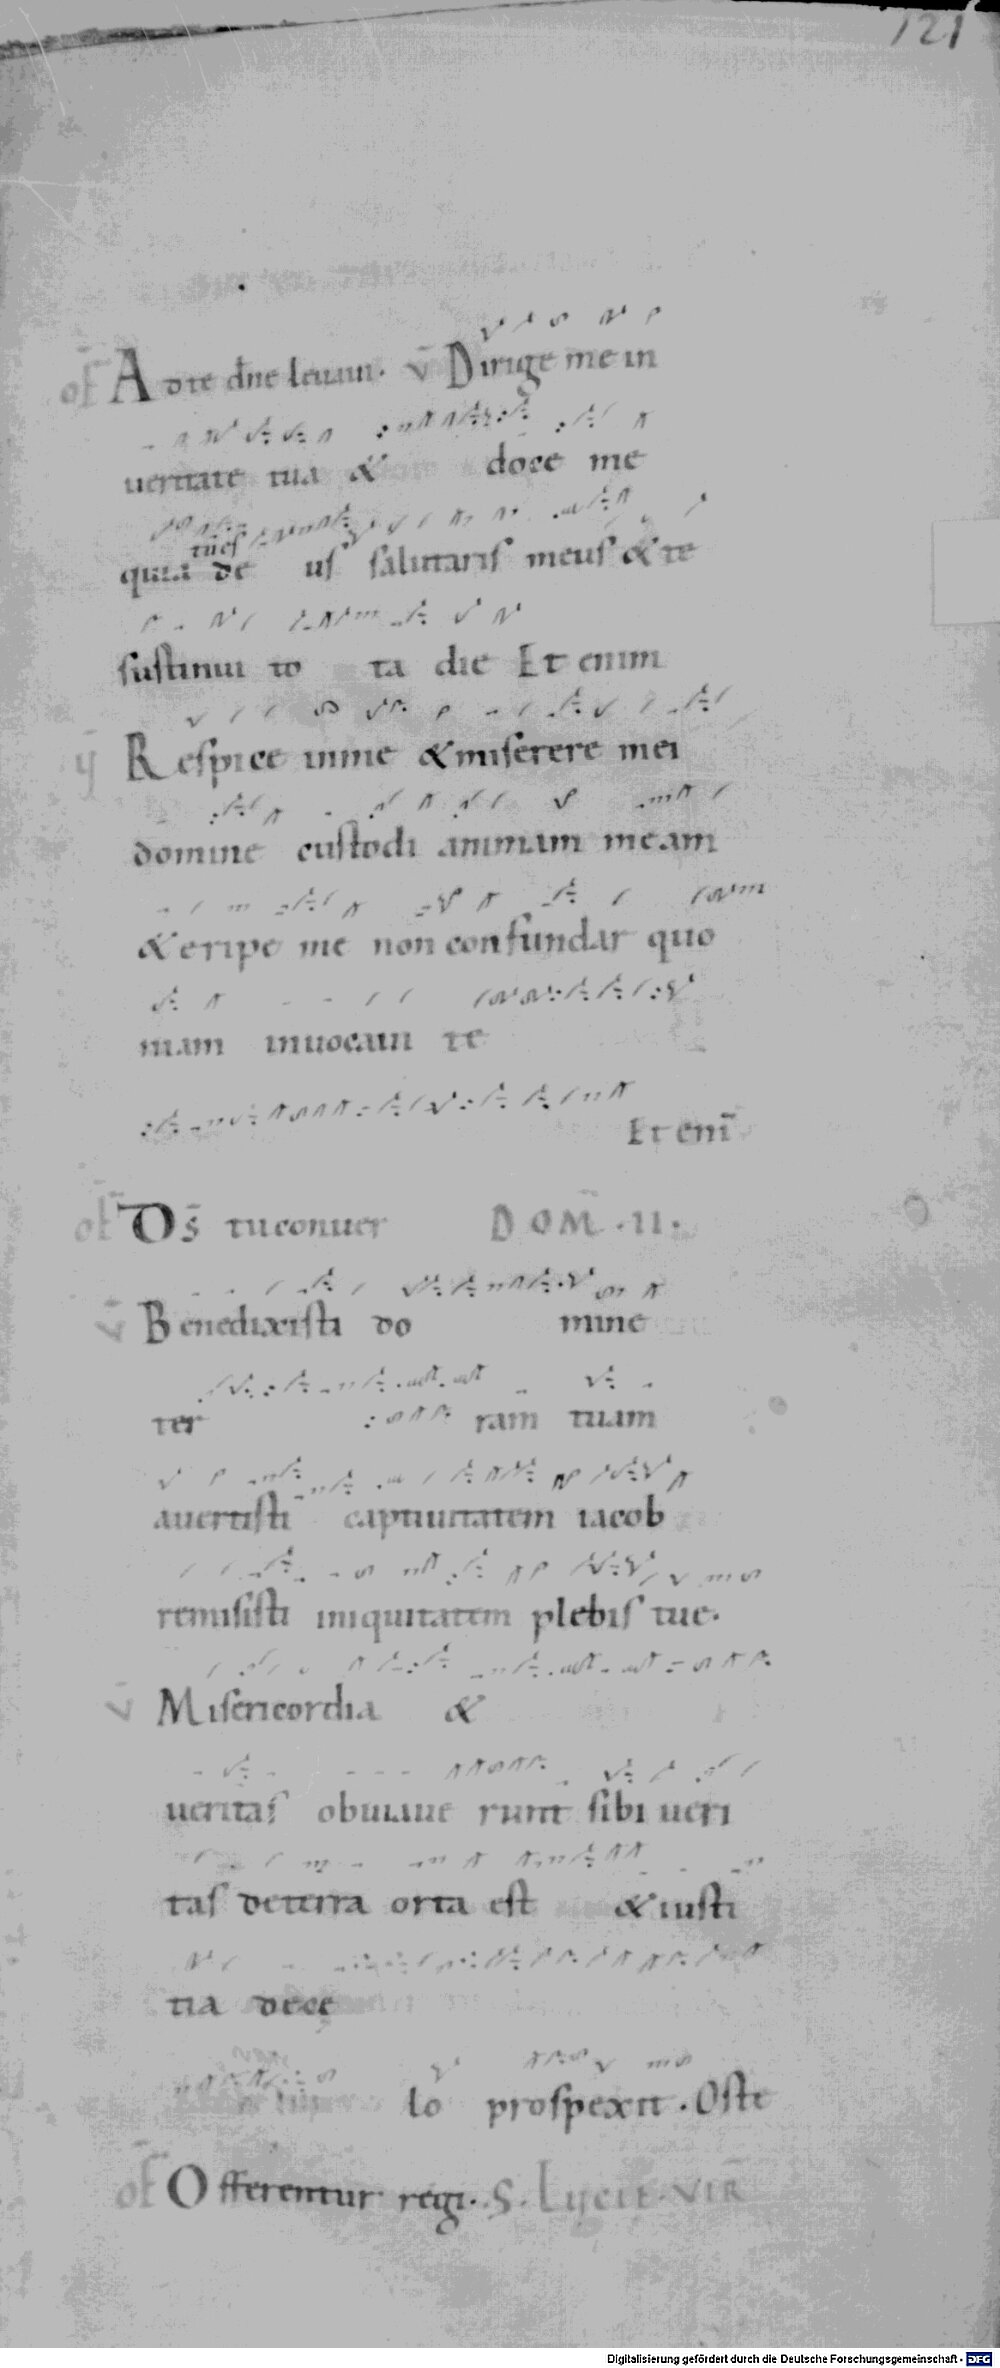 121
of A dte dne leuaui. v Dirige me in
ueritate tua & doce me
tu es
quia de us salutaris meus & te
sustinui to ta die Et enim
ij Respice inme & miserere mei
domine custodi animam meam
& eripe me non confundar quo
niam inuocaui te
Et eni
of Ds tu conuer DOM . II .
v Benedixisti do mine
ter ram tuam
auertisti captiuitatem iacob
remisisti iniquitatem plebis tue.
v Misericordia &
ueritas obuiaue runt sibi ueri
tas deterra orta est & iusti
tia dece
lo prospexit . Oste
of Offerentur regi . S. Lucie . VIR
Digitalisierung gefördert durch die Deutsche Forschungsgemeinschaft - DFG